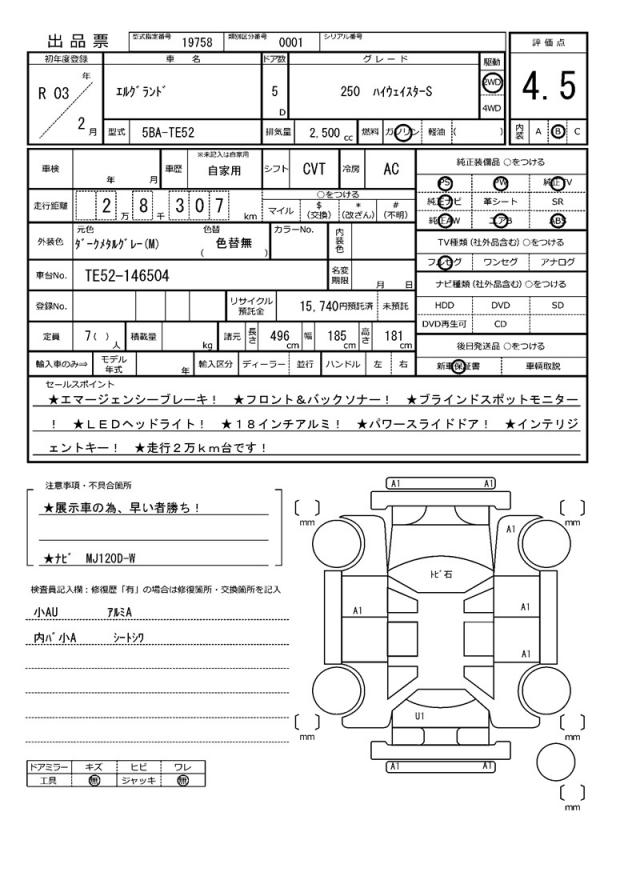 出品票 型式指定番号 19758 類別区分番号 0001 シリアル番号
評価点
4.5
内装 A B C
初年度登録 車名 ドア数 グレード 駆動
R 03 年 2 月 エルグランド 5 D 250 ハイウェイスターS 2WD 4WD
型式 5BA-TE52 排気量 2,500 cc 燃料 ガソリン 軽油 ( )
車検 年 月 車歴 ※未記入は自家用 自家用 シフト CVT 冷房 AC
走行距離 2 万 8 千 3 0 7 km ○をつける
マイル $ (交換) * (改ざん) # (不明)
外装色 元色 ダークメタルグレー(M) 色替 色替無 ( ) カラーNo. 内装色
車台No. TE52-146504 名変期限 月 日
登録No. リサイクル預託金 15,740円預託済 未預託
定員 7( ) 人 積載量 kg 諸元 長さ 496 cm 幅 185 cm 高さ 181 cm
輸入車のみ⇒ モデル年式 年 輸入区分 ディーラー 並行 ハンドル 左 右
純正装備品 ○をつける
PS PW 純正TV
純正ナビ 革シート SR
純正AW エアB ABS
TV種類(社外品含む)○をつける
フルセグ ワンセグ アナログ
ナビ種類(社外品含む)○をつける
HDD DVD SD
DVD再生可 CD
後日発送品 ○をつける
新車保証書 車輌取説
セールスポイント
★エマージェンシーブレーキ! ★フロント&バックソナー! ★ブラインドスポットモニター
! ★LEDヘッドライト! ★18インチアルミ! ★パワースライドドア! ★インテリジ
ェントキー! ★走行2万km台です!
注意事項・不具合箇所
★展示車の為、早い者勝ち!
★ナビ MJ120D-W
検査員記入欄:修復歴「有」の場合は修復箇所・交換箇所を記入
小AU アルミA
内バ小A シートシワ
ドアミラー キズ ヒビ ワレ
工具 無 ジャッキ 無
A1 A1
[ ] mm [ ] mm
A1
トビ石
A1 A1
A1
U1
[ ] mm [ ] mm
A1 A1
[ ] mm